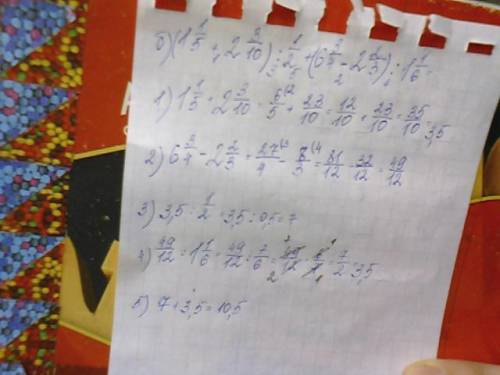 б) (1 1/5 + 2 3/10) : 1/2 + (6 3/4 - 2 2/3) : 1 1/6
1) 1 1/5 + 2 3/10 = 6/5 + 23/10 = 12/10 + 23/10 = 35/10 = 3,5
2) 6 3/4 - 2 2/3 = 27/4 - 8/3 = 81/12 - 32/12 = 49/12
3) 3,5 : 1/2 = 3,5 : 0,5 = 7
4) 49/12 : 1 1/6 = 49/12 : 7/6 = 49/12 · 6/7 = 7/2 = 3,5
5) 7 + 3,5 = 10,5